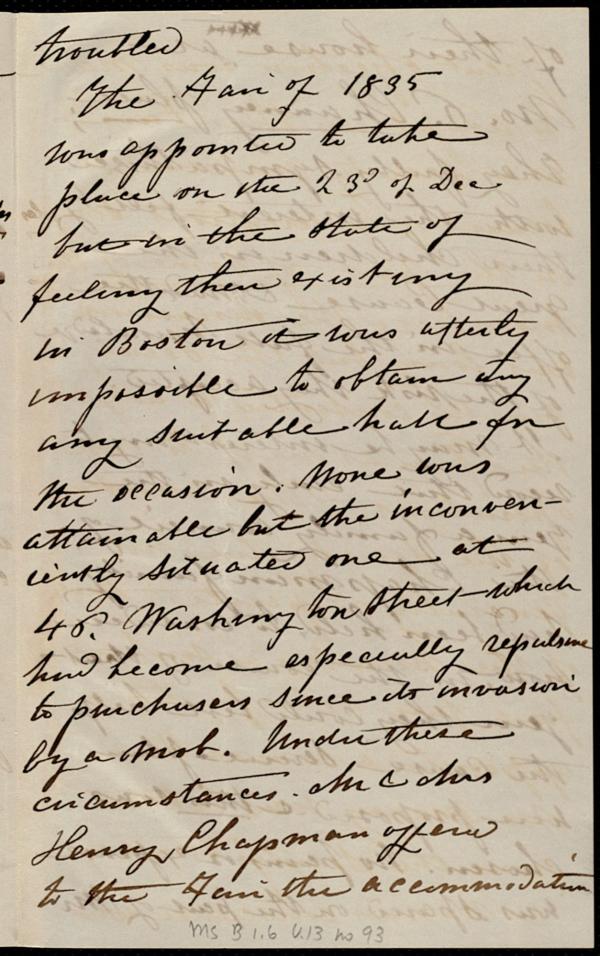 troubled
The Fair of 1835
was appointed to take
place on the 23d of Dec
but in the state of
feeling then existing
in Boston it was utterly
impossible to obtain any
any suitable hall for
the occasion. None was
attainable but the inconven-
iently situated one at
46. Washington Street which
had become especially repulsive
to purchasers since its invasion
by a mob. Under these
circumstances. Mr & Mrs
Henry Chapman offered
to the Fair the accommodation
MS B 1.6 V.13 no 93